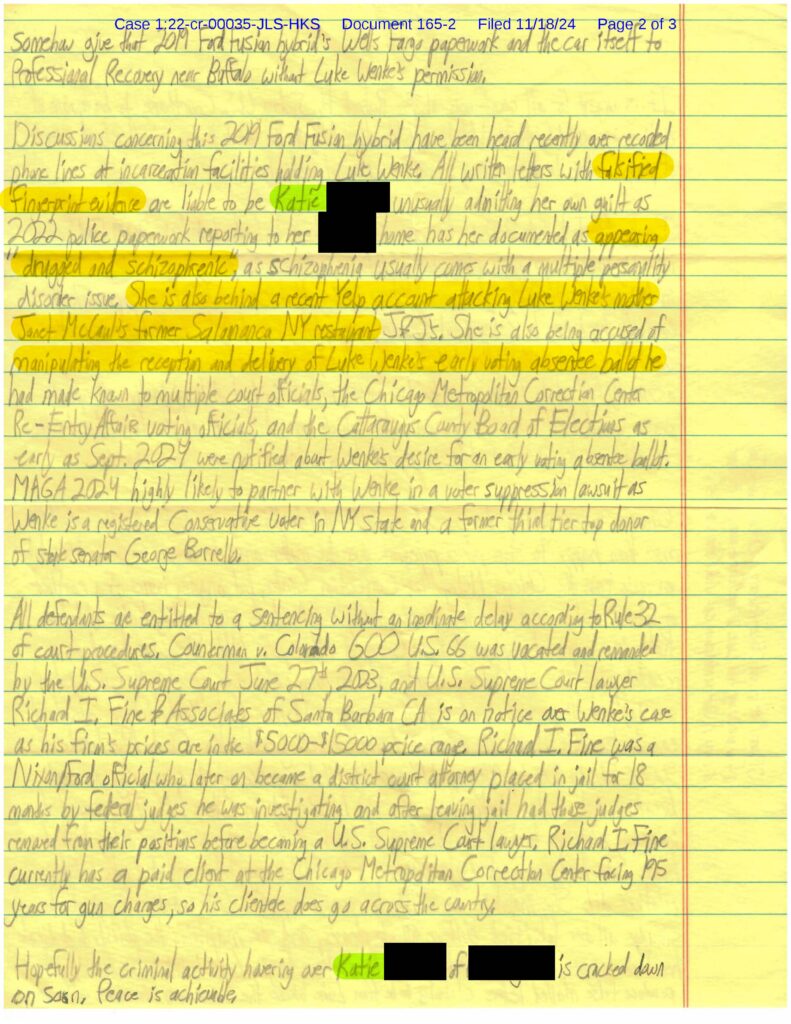 Case 1:22-cr-00035-JLS-HKS Document 165-2 Filed 11/18/24 Page 2 of 3
Somehow give that 2019 Ford Fusion hybrid's Wells Fargo paperwork and the car itself to
Professional Recovery near Buffalo without Luke Wenke's permission.
Discussions concerning this 2019 Ford Fusion hybrid have been heard recently over recorded
phone lines at incarceration facilities holding Luke Wenke. All written letters with falsified
fingerprint evidence are liable to be Katie unusually admitting her own guilt as
2022 police paperwork reporting to her home has her documented as appearing
"drugged and schizophrenic", as schizophrenia usually comes with a multiple personality
disorder issue. She is also behind a recent Yelp account attacking Luke Wenke's mother
Janet McCaul's former Salamanca NY restaurant J&J's. She is also being accused of
manipulating the reception and delivery of Luke Wenke's early voting absentee ballot he
had made known to multiple court officials, the Chicago Metropolitan Correction Center
Re-Entry Affairs voting officials, and the Cattaraugus County Board of Elections as
early as Sept. 2024 were notified about Wenke's desire for an early voting absentee ballot.
MAGA 2024 highly likely to partner with Wenke in a voter suppression lawsuit as
Wenke is a registered Conservative voter in NY state and a former third tier top donor
of state senator George Borrello.
All defendants are entitled to a sentencing without an inordinate delay according to Rule 32
of court procedures. Counterman v. Colorado 600 U.S. 66 was vacated and remanded
by the U.S. Supreme Court June 27th, 2023, and U.S. Supreme Court lawyer
Richard I. Fine & Associates of Santa Barbara CA is on notice over Wenke's case
as his firm's prices are in the $5000-$15000 price range. Richard I. Fine was a
Nixon/Ford official who later on became a district court attorney placed in jail for 18
months by federal judges he was investigating and after leaving jail had those judges
removed from their positions before becoming a U.S. Supreme Court lawyer. Richard I. Fine
currently has a paid client at the Chicago Metropolitan Correction Center facing 195
years for gun charges, so his clientele does go across the country.
Hopefully the criminal activity hovering over Katie of is cracked down
on soon. Peace is achievable.